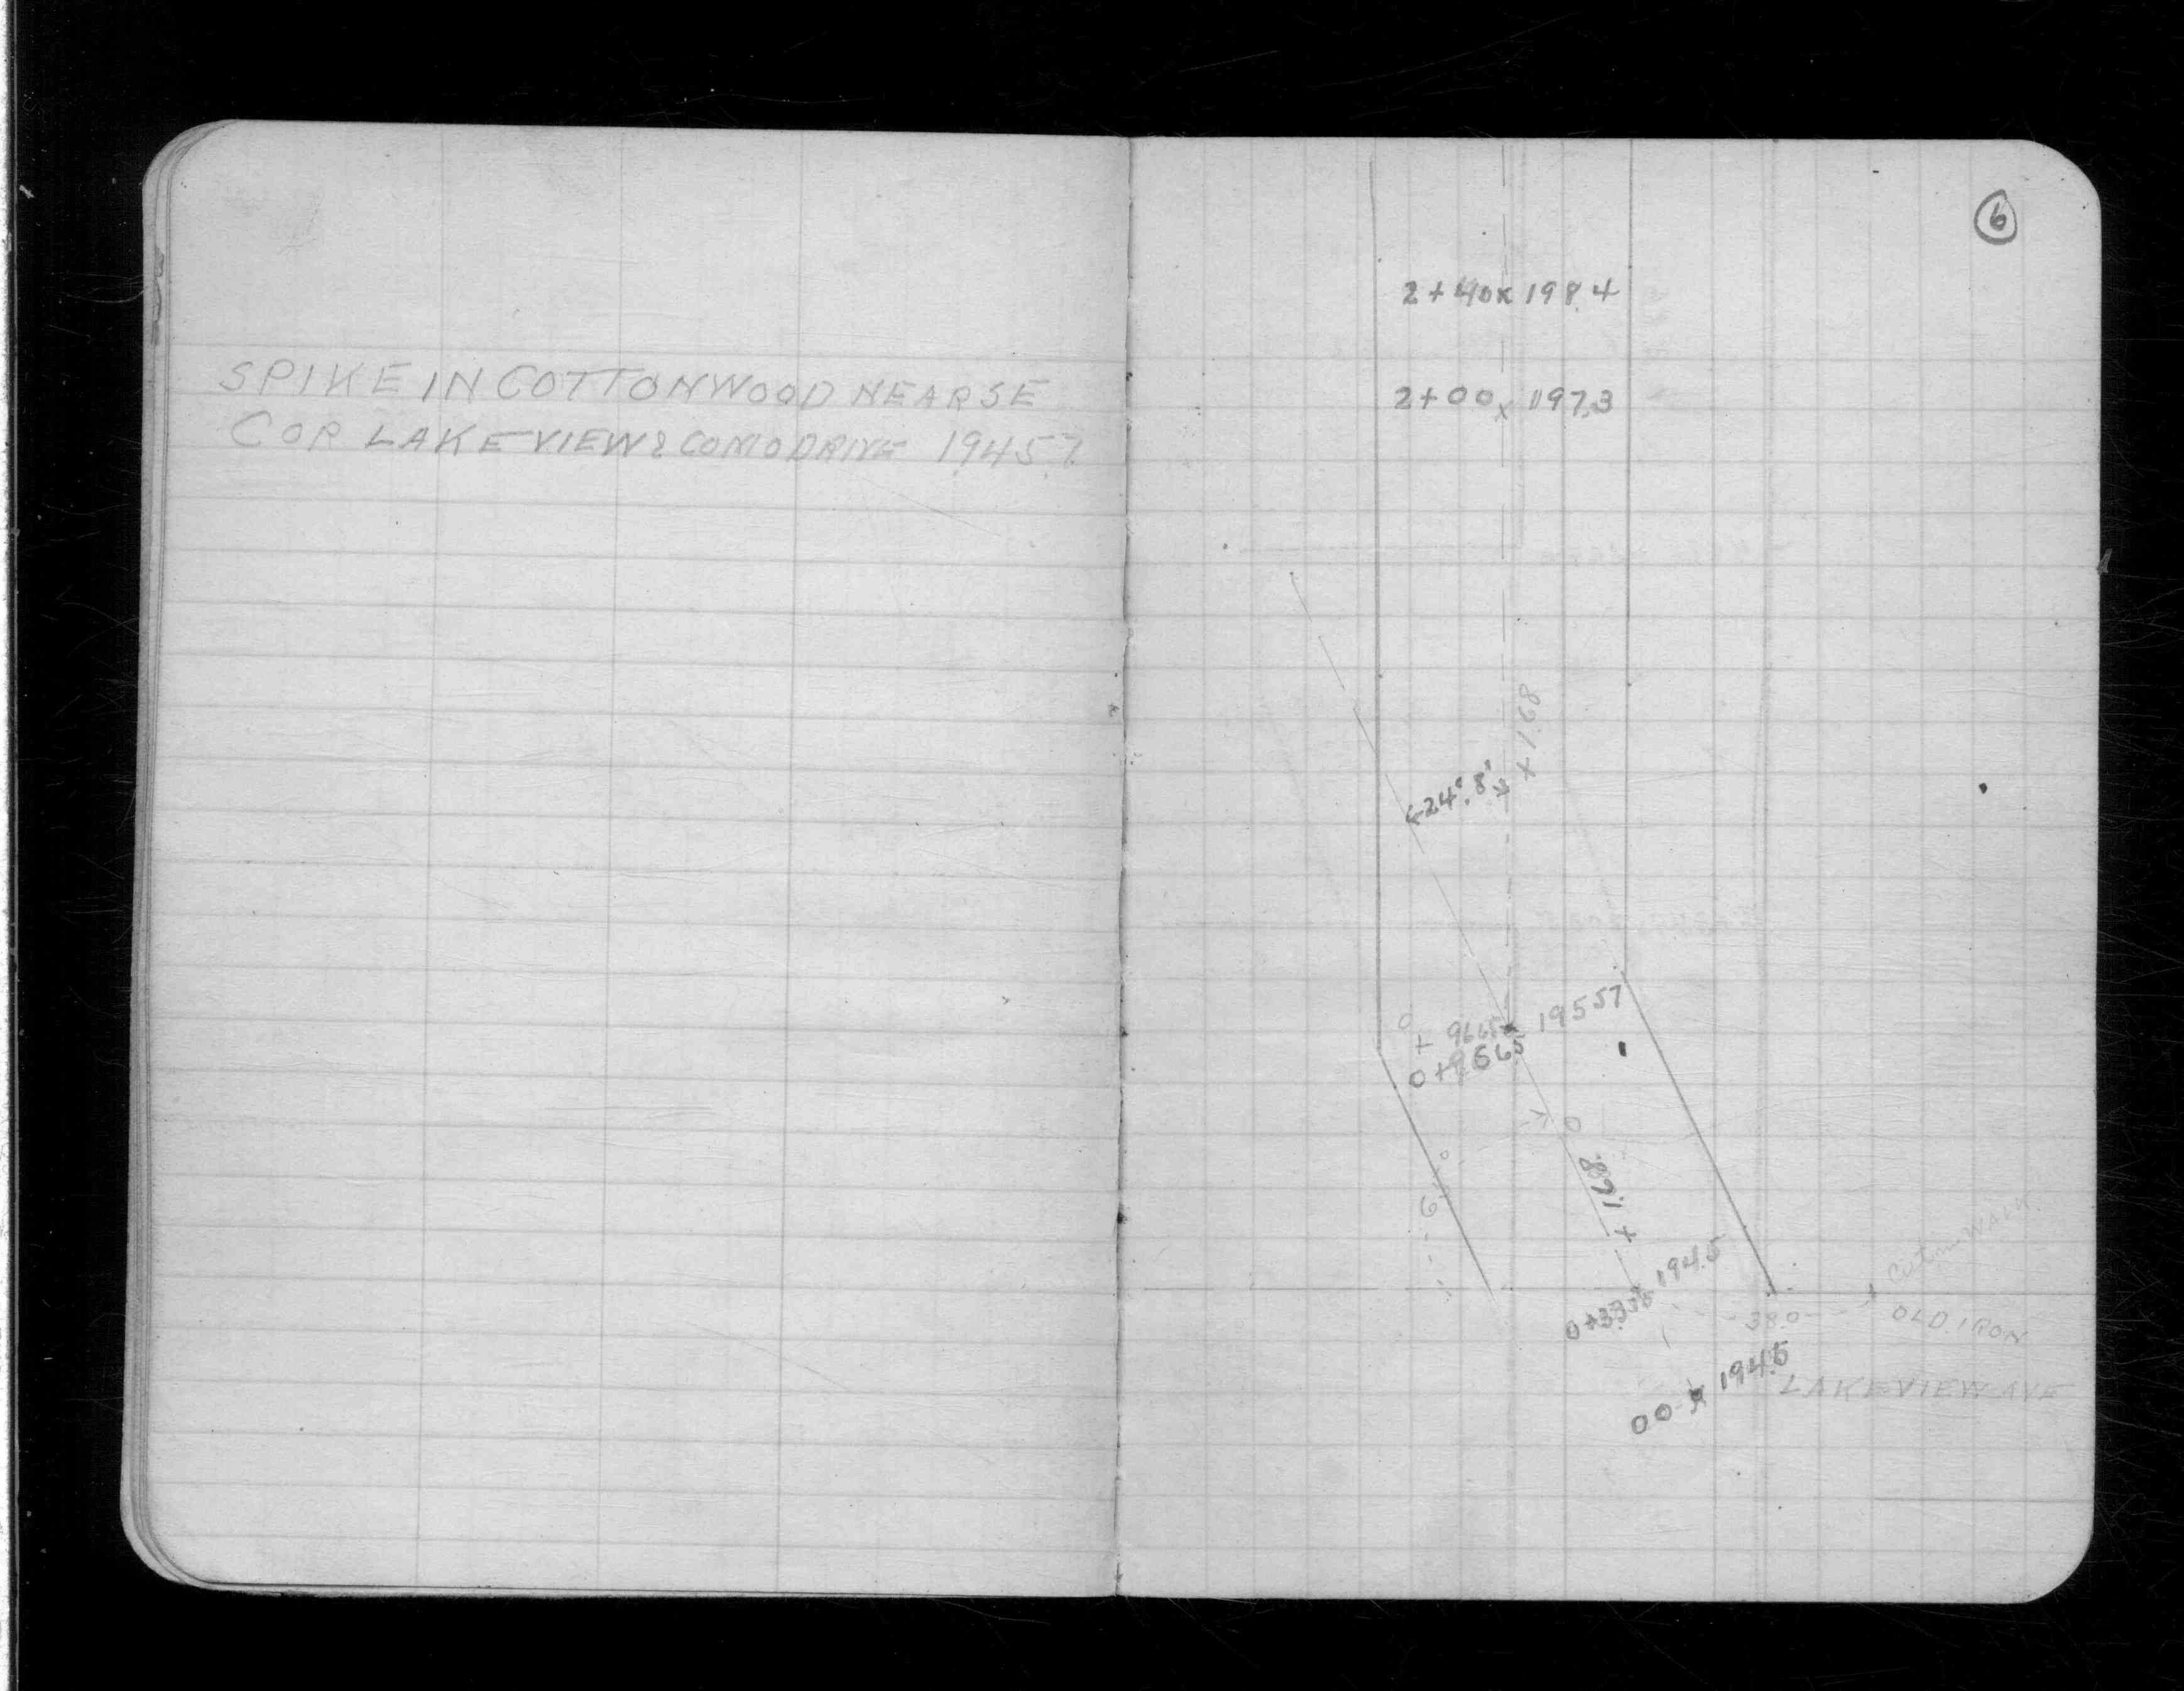 SPIKE IN COTTONWOOD NEAR SE
COR LAKEVIEW & COMO DRIVE 194.57
6
2+40 x 198.4
2+00 x 197.3
+1.68
24° 8'
0
+ 9665 195.57
0+9665
0
+ 1.68
194.5
38.0
Cut in WALK
OLD IRON
00 x 194.5
LAKEVIEW AVE